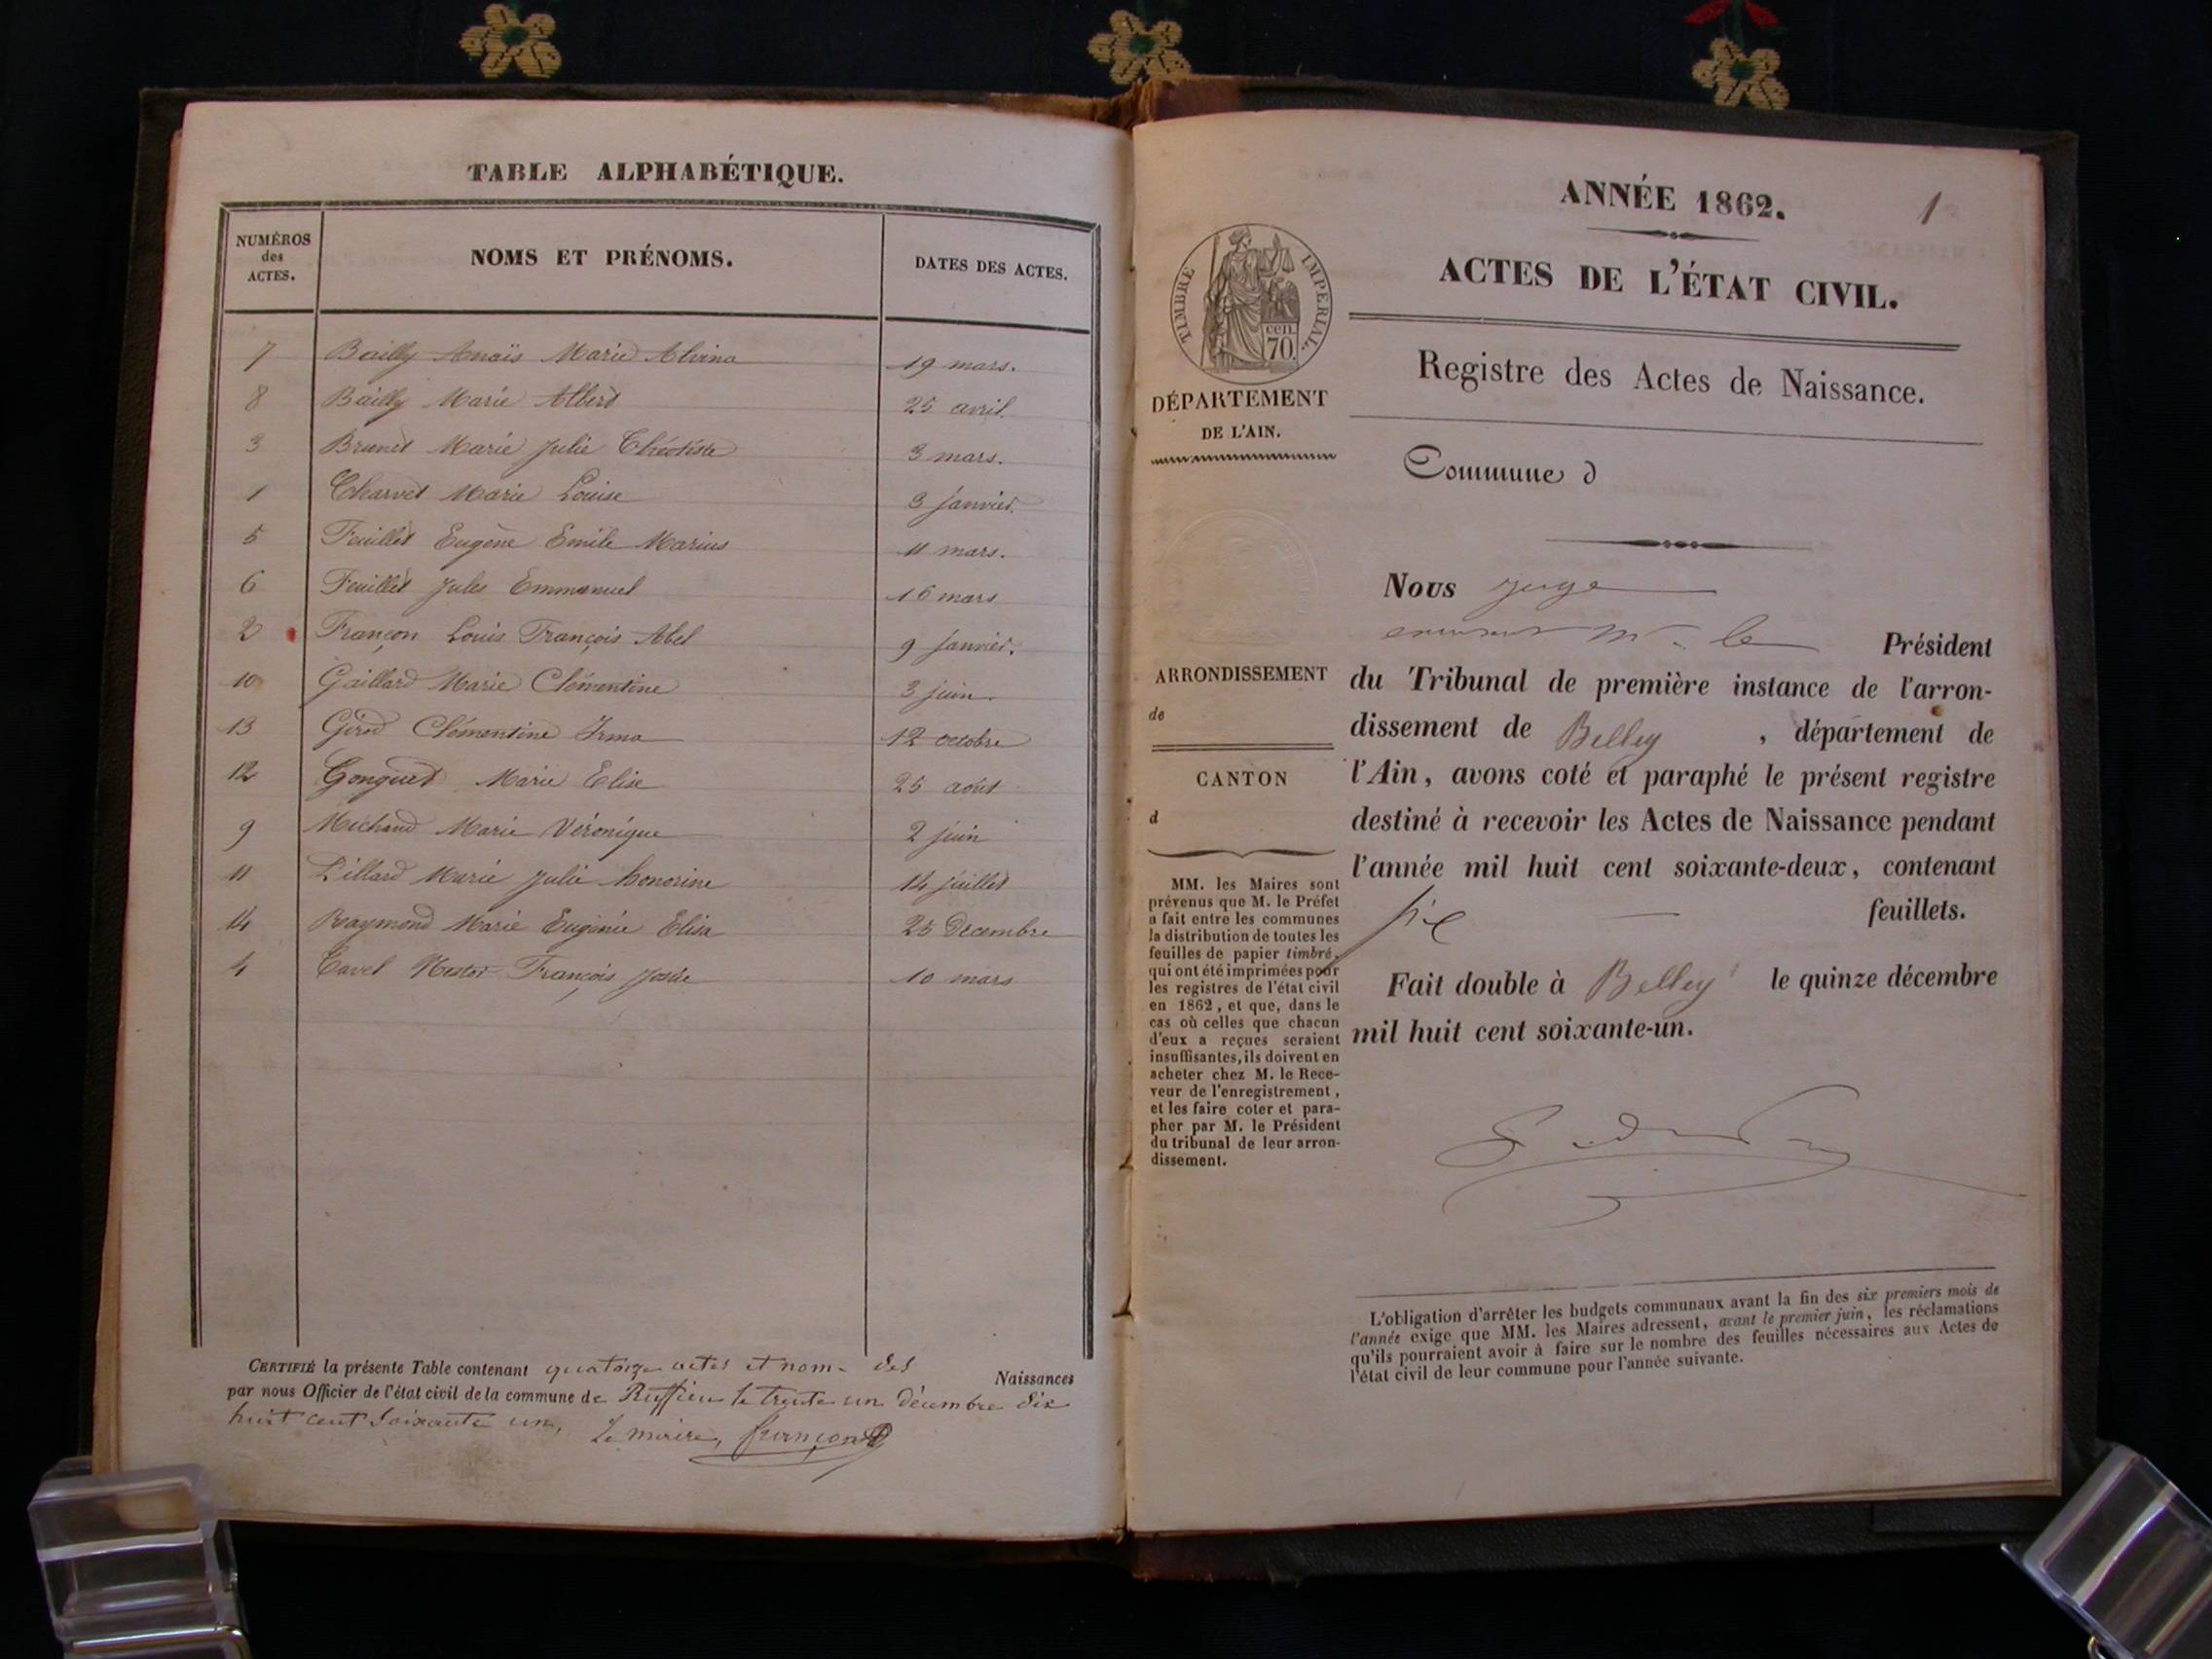 TABLE ALPHABÉTIQUE.
NUMÉROS
des
ACTES.
NOMS ET PRÉNOMS.
DATES DES ACTES.
7 Bailly Anaïs Marie Alvina 19 mars.
8 Bailly Marie Albert 25 avril.
3 Brunet Marie Julie Théotiste 3 mars.
1 Charvet Marie Louise 3 janvier.
5 Feuillet Eugène Emile Marius 11 mars.
6 Feuillet Jules Emmanuel 16 mars
2 Françon Louis François Abel 9 janvier.
10 Gaillard Marie Clémentine 3 juin.
13 Girod Clémentine Irma 12 octobre
12 Gonguet Marie Elise 25 août
9 Michaud Marie Véronique 2 juin
11 Pillard Marie Julie honorine 14 juillet
14 Raymond Marie Eugénie Elisa 25 Décembre
4 Tavel Nestor François Josüe 10 mars
CERTIFIÉ la présente Table contenant quatorze actes et nom des Naissances
par nous Officier de l'état civil de la commune de Ruffieu le trente un décembre dix
huit cent soixante un, Le maire, françon
ANNÉE 1862.
1
ACTES DE L'ÉTAT CIVIL.
TIMBRE IMPERIAL.
cen.
70.
Registre des Actes de Naissance.
DÉPARTEMENT
DE L'AIN.
Commune d
Nous juge
Mr le Président
ARRONDISSEMENT
de
CANTON
d
du Tribunal de première instance de l'arron-
dissement de Belley , département de
l'Ain, avons coté et paraphé le présent registre
destiné à recevoir les Actes de Naissance pendant
l'année mil huit cent soixante-deux, contenant
six feuillets.
Fait double à Belley le quinze décembre
mil huit cent soixante-un.
MM. les Maires sont
prévenus que M. le Préfet
a fait entre les communes
la distribution de toutes les
feuilles de papier timbré,
qui ont été imprimées pour
les registres de l'état civil
en 1862, et que, dans le
cas où celles que chacun
d'eux a reçues seraient
insuffisantes, ils doivent en
acheter chez M. le Rece-
veur de l'enregistrement,
et les faire coter et para-
pher par M. le Président
du tribunal de leur arron-
dissement.
L'obligation d'arrêter les budgets communaux avant la fin des six premiers mois de
l'année exige que MM. les Maires adressent, avant le premier juin, les réclamations
qu'ils pourraient avoir à faire sur le nombre des feuilles nécessaires aux Actes de
l'état civil de leur commune pour l'année suivante.